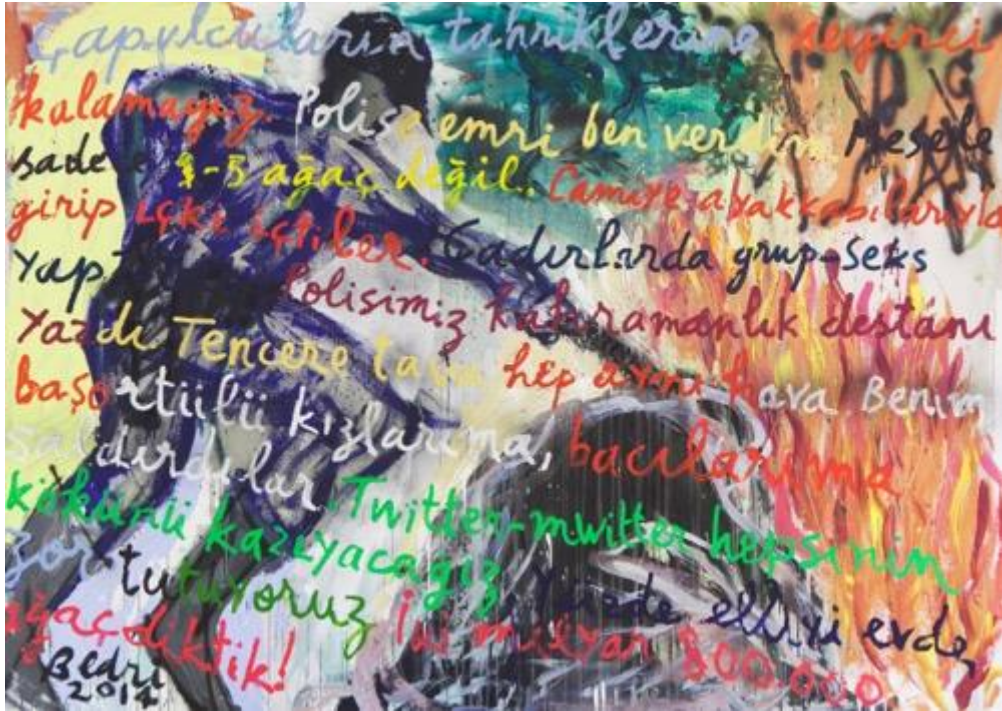 Çapulcuların tahriklerine seyirci
kalamayız. Polise emri ben verdim Mesele
sadece 3-5 ağaç değil.. Camiye ayakkabılarıyla
girip içki içtiler. Çadırlarda grup-seks
Polisimiz kahramanlık destanı
Yazdı Tencere tava hep aynı hava Benim
başörtülü kızlarıma, bacılarıma
saldırdılar Twitter-mwitter hepsinin
kökünü kazıyacağız Yüzde elliyi evde
zor tutuyoruz İki milyar 800.000
ağaç diktik!
Bedri
2014